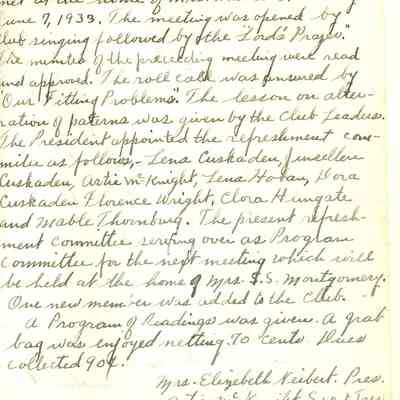 met at the home of Mrs.
June 7, 1933. The meeting was opened by
club singing followed by the "Lord's Prayer."
The minutes of the preceeding meeting were read
and approved. The roll call was answred by
"Our Fitting Problems". The lesson on alter-
ration of paterns was given by the Club Leaders.
The President appointed the refreshment com-
mittee as follows,- Lena Cuskaden, Jusellen
Cuskaden, Artie McKnight, Lena Hotau, Dora
Cuskaden Florence Wright, Clora Hungate
and Mable Thornburg. The present refresh-
ment Committee serving over as Program
Committee for the next meeting which will
be held at the home of Mrs. S.S. Montgomery.
One new member was added to the Club.
A Program of Readings was given. A grab
bag was enjoyed netting 70 cents. Dues
collected 90¢.
Mrs. Elizebeth Neibert. Pres.